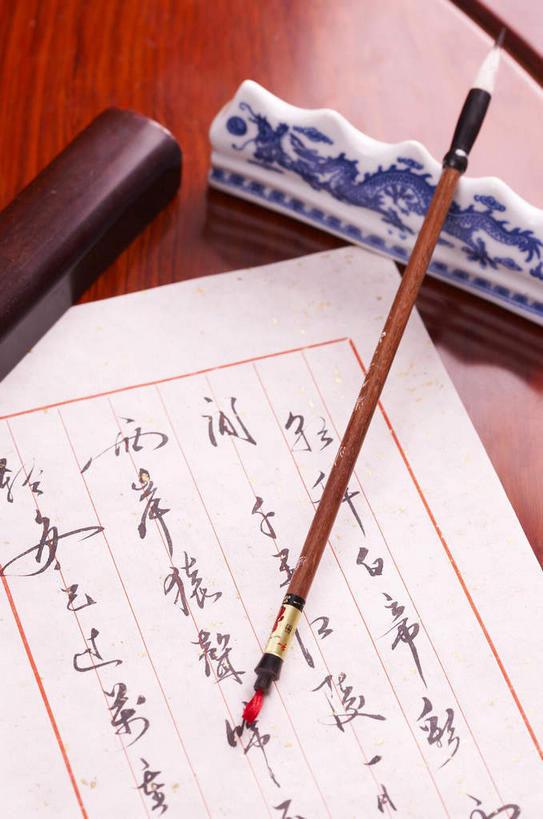 朝辭白帝彩
間千里江陵一日
兩岸猿聲啼不
輕舟已過萬重